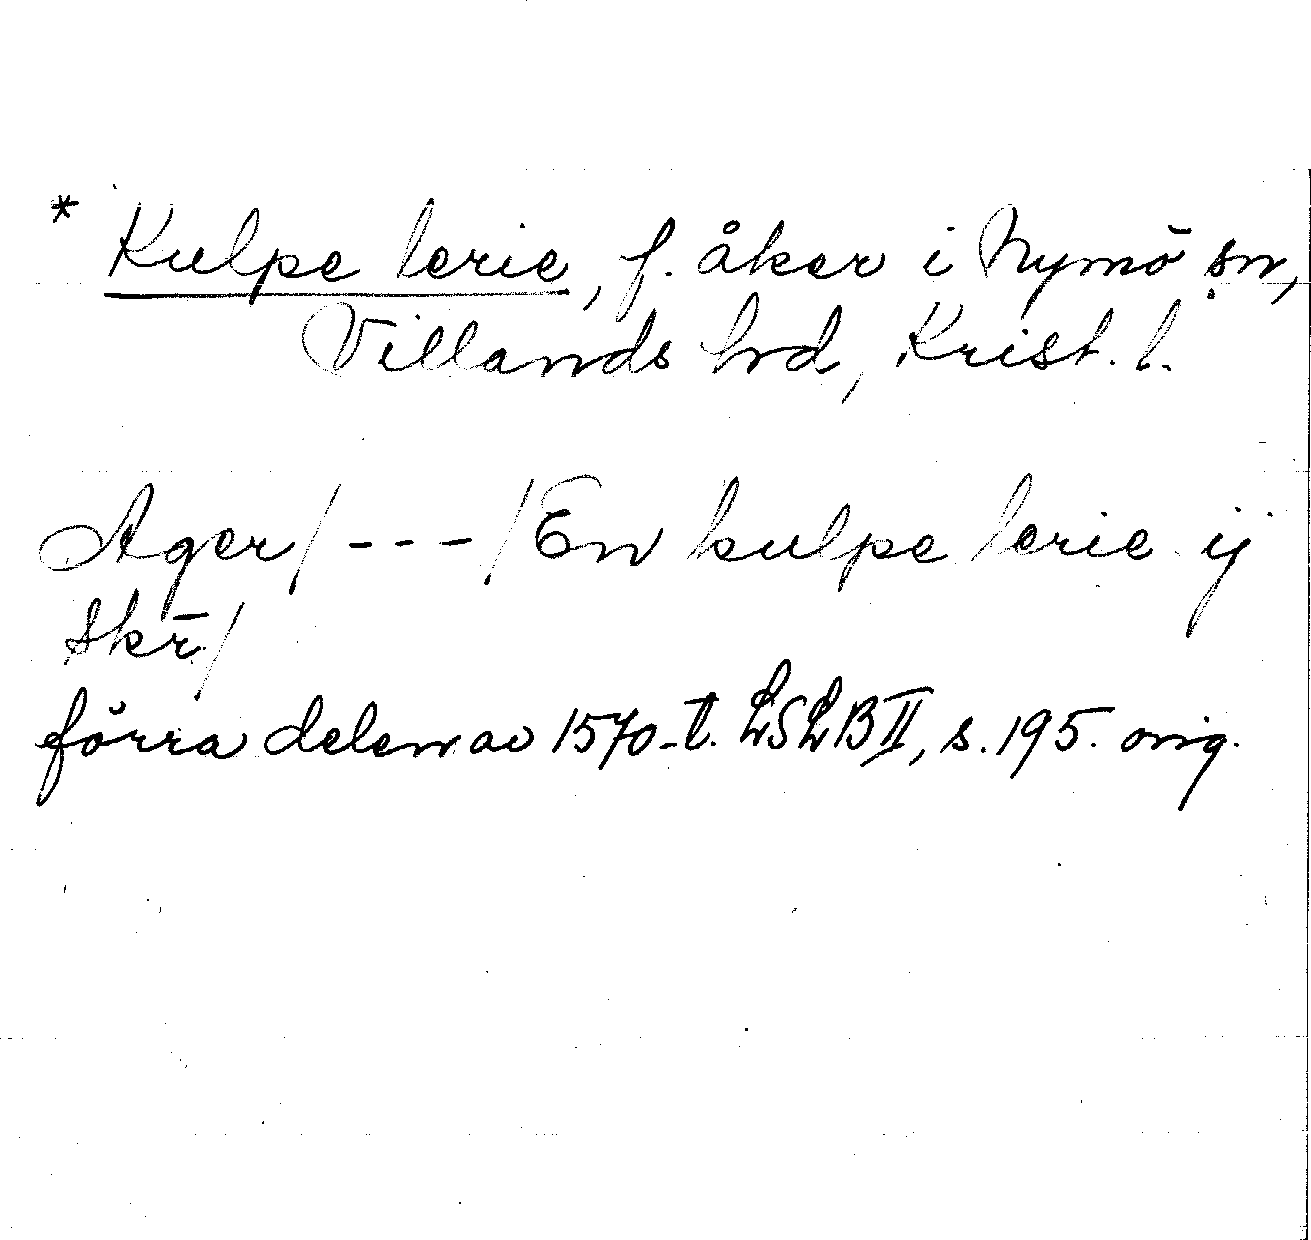 * Kulpe lerie, f. åker i Nymö sn,
Villands hrd, Krist. l.
Ager/ - - - /En kulpe lerie ij
skr̄/
förra delen av 1570-t. LSLB II, s. 195. orig.